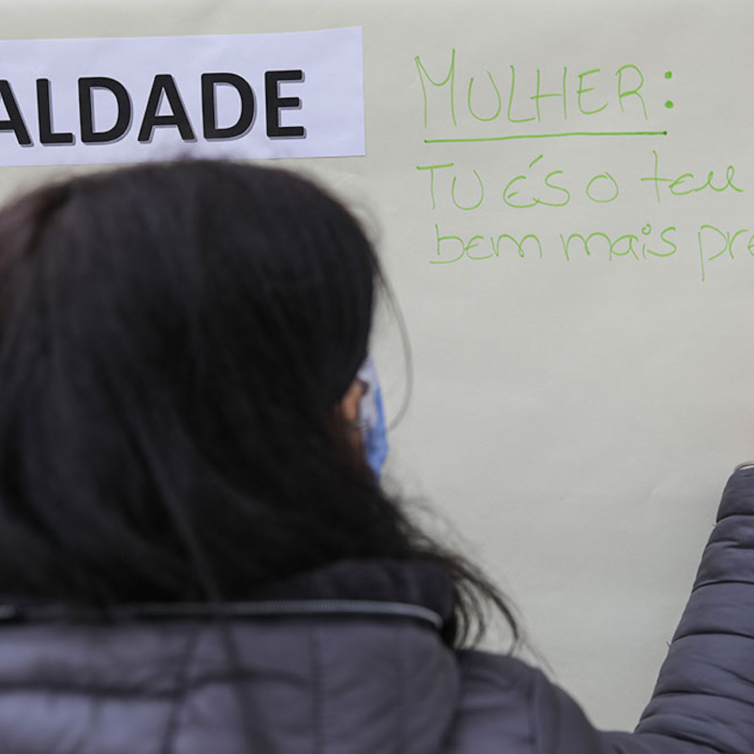 ALDADE
MULHER:
TU ÉS O teu
bem mais pre